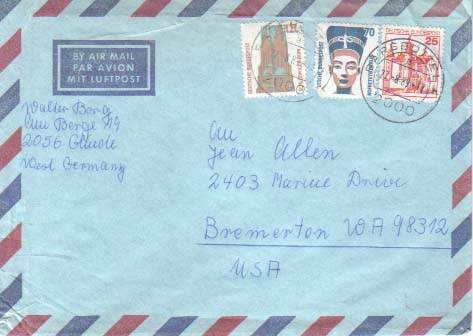 BY AIR MAIL
PAR AVION
MIT LUFTPOST
Walter Borg
Am Berge 19
2056 Glinde
West Germany
An
Jean Allen
2403 Marine Drive
Bremerton WA 98312
USA
DEUTSCHE BUNDESPOST
70
DEUTSCHE BUNDESPOST
25
2000